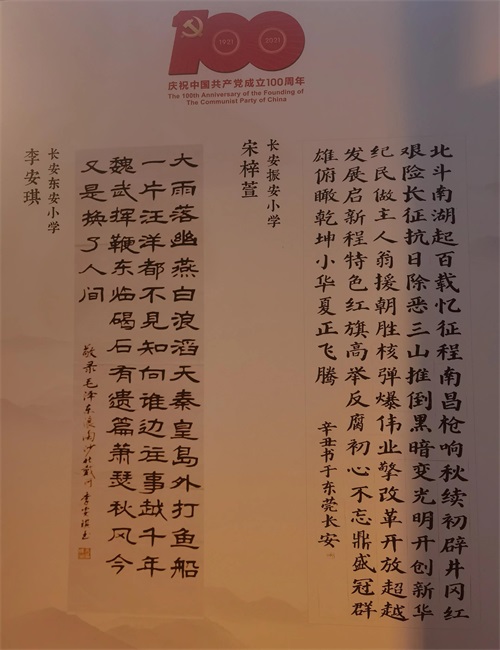 100
1921
2021
庆祝中国共产党成立100周年
The 100th Anniversary of the Founding of
The Communist Party of China
北斗南湖起百载忆征程南昌枪响秋续初辟井冈红
艰险长征抗日除恶三山推倒黑暗变光明开创新华
纪民做主人翁援朝胜核弹爆伟业擎改革开放超越
发展启新程特色红旗高举反腐初心不忘鼎盛冠群
雄俯瞰乾坤小华夏正飞腾
辛丑书于东莞长安
长安振安小学
宋梓萱
大雨落幽燕白浪滔天秦皇岛外打鱼船
一片汪洋都不见知向谁边往事越千年
魏武挥鞭东临碣石有遗篇萧瑟秋风今
又是换了人间
敬录毛泽东浪淘沙北戴河李安琪书
长安东安小学
李安琪